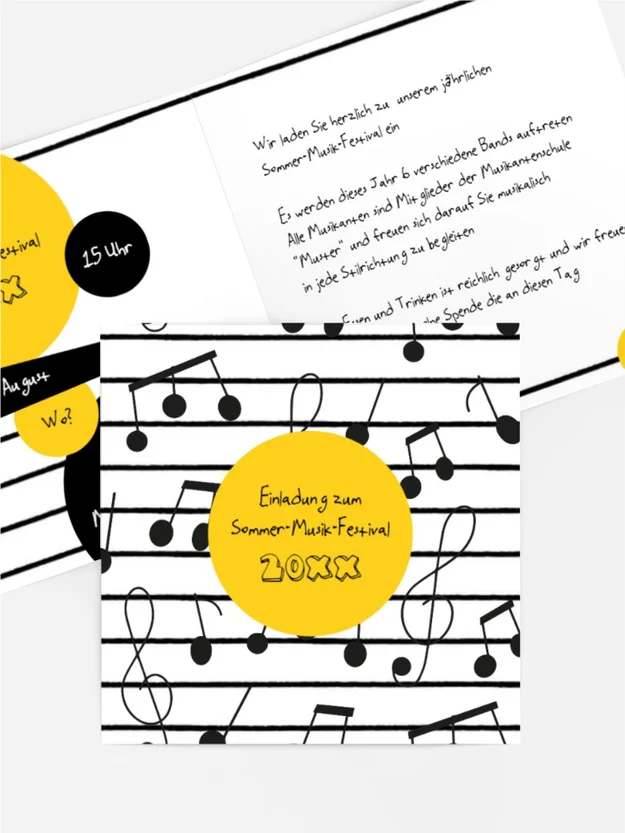 Wir laden Sie herzlich zu unserem jährlichen
Sommer-Musik-Festival ein
Es werden dieses Jahr 6 verschiedene Bands auftreten
Alle Musikanten sind Mitglieder der Musikantenschule
"Muster" und freuen sich darauf Sie musikalisch
in jede Stilrichtung zu begleiten
und Trinken ist reichlich gesorgt und wir
Spende die an diesen Tag
15 Uhr
August
Wo?
Einladung zum
Sommer-Musik-Festival
20XX